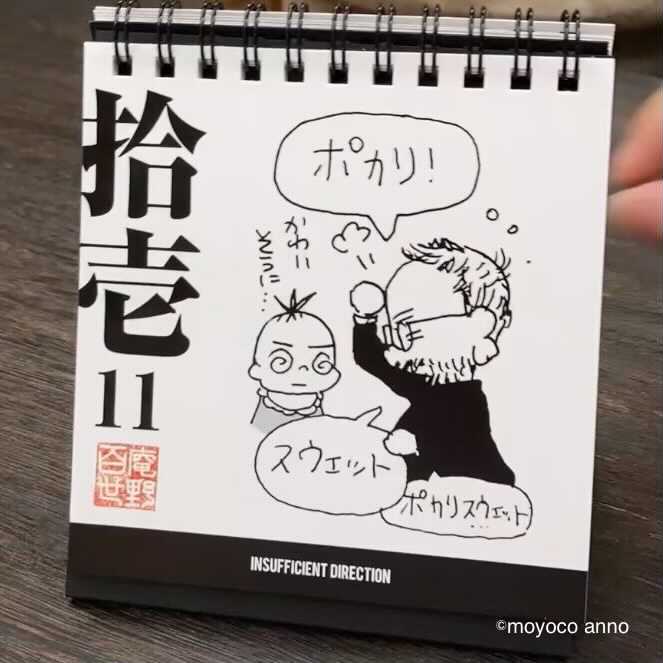 拾壱
11
ポカリ!
かわいこ
スウェット
ポカリスウェット
...
庵野
百世
INSUFFICIENT DIRECTION
©moyoco anno